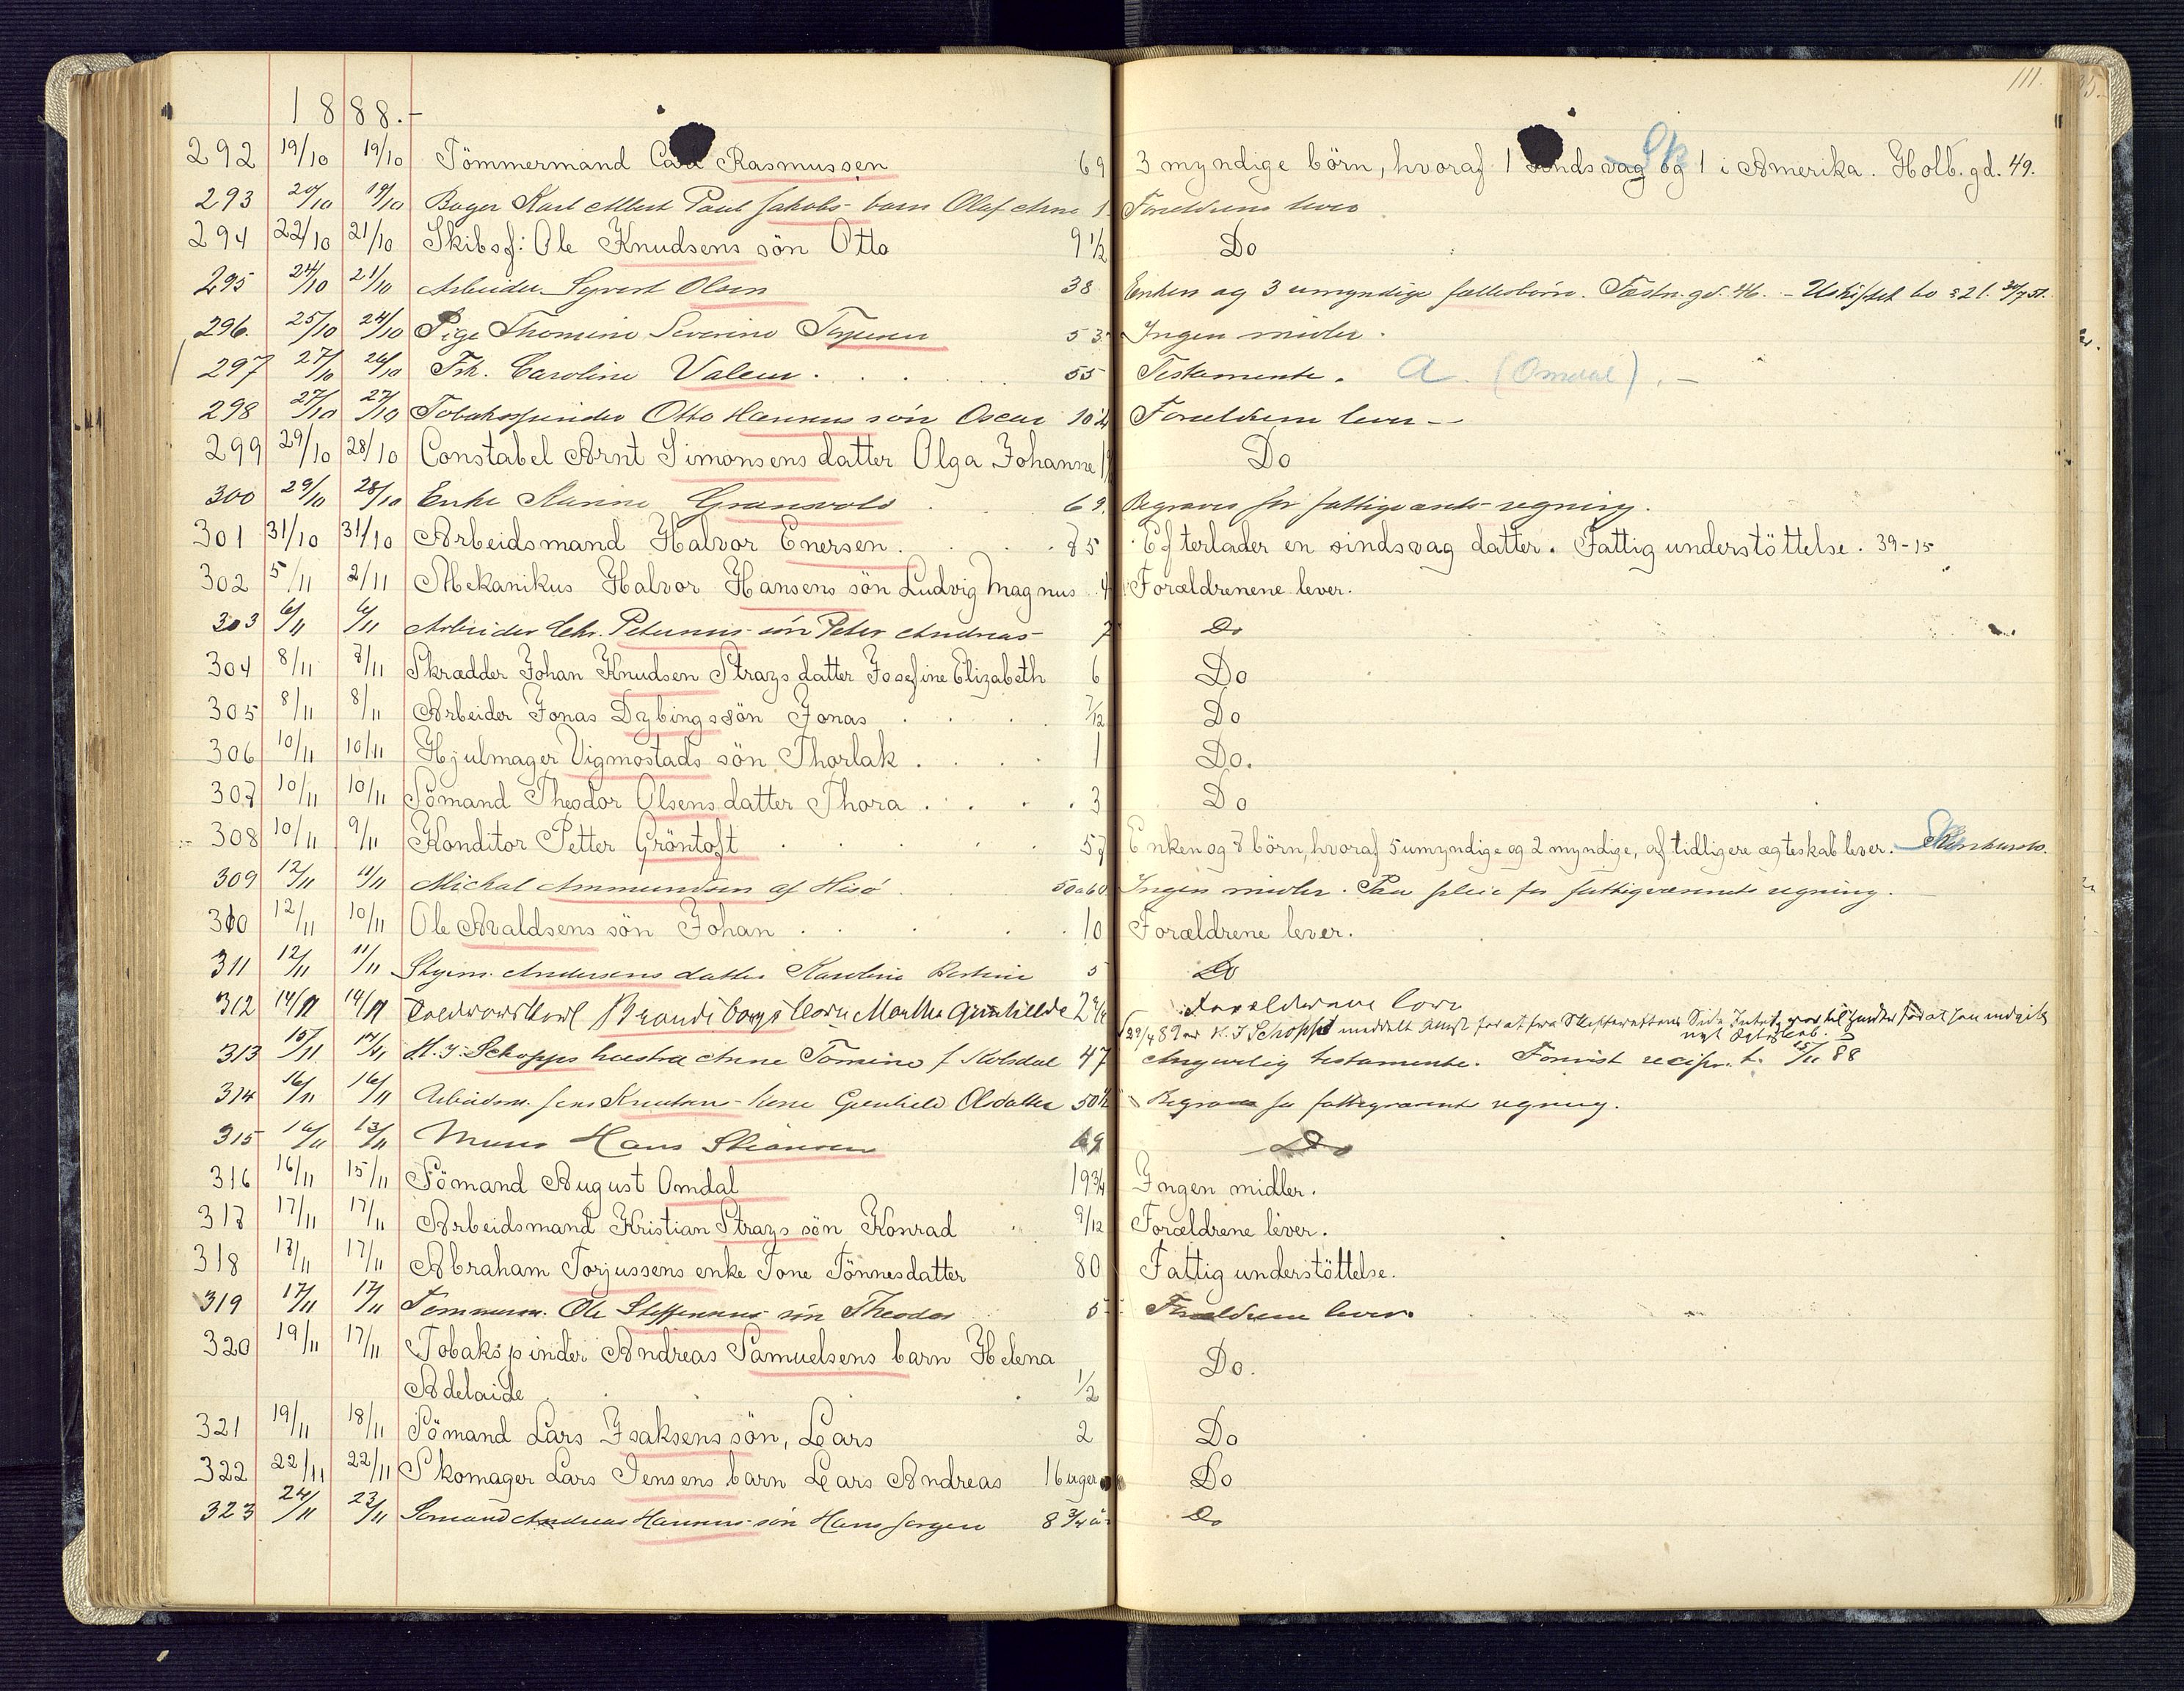 111.
1888.-
292 19/10 19/10 Tömmermand Carl Rasmussen 69 3 myndige börn, hvoraf 1 sindssvag og 1 i Amerika. Holb. gd. 49.
293 20/10 19/10 Bager Karl Albert Paul Jakobs barn Olaf Arne 1 Forældrene lever
294 22/10 21/10 Skibsf: Ole Knudsens sön Otto 9 1/2 Do
295 24/10 21/10 Arbeider Syvert Olsen 38 Enken og 3 umyndige fællesbörn. Fæstn. gd. 46. - Uskiftet bo
296. 25/10 24/10 Pige Thomine Severine Terjesen 53 Ingen midler.
297 27/10 26/10 Frk. Caroline Valeur. 55 Testamente. A. (Omdal). -
298 27/10 27/10 Tobakspinder Otto Hansens sön Oscar 10 1/2 Forældrene lever -
299 29/10 28/10 Constabel Arnt Simonsens datter Olga Johanne Do
300 29/10 28/10 Enke Karine Gransvold 69. Begraves for fattigvæsnets regning.
301 31/10 31/10 Arbeidsmand Halvor Enersen. 75 Efterlader en sindsvag datter. Fattigunderstöttelse. 39-15
302 5/11 2/11 Mekanikus Halvor Hansens sön Ludvig Magnus 4 Forældrenene lever.
303 6/11 6/11 Arbeider Chr. Petersens sön Peter Andreas 7 Do
304 8/11 7/11 Skrædder Johan Knudsen Strays datter Josefine Elizabeth 6 Do
305 8/11 8/11 Arbeider Jonas Dybings sön Jonas 7/12 Do
306 10/11 10/11 Hjulmager Vigmostads sön Thorlak. 1 Do.
307 10/11 10/11 Sömand Theodor Olsens datter Thora. 3 Do
308 10/11 9/11 Konditor Petter Gröntoft 57 Enken og 7 börn, hvoraf 5 umyndige og 2 myndige, af tidligere ægteskab lever.
309 12/11 11/11 Michal Ammundsen af Hisö 50 a 60 Ingen midler. Paa pleie for fattigvæsnets regning.
310 12/11 10/11 Ole Avaldsens sön Johan 10 Forældrene lever.
311 12/11 11/11 Styrm. Andersens datter Karoline Bertine 5 Do
312 14/11 14/11 barn Martha Gunhilde 2 Forældrene lever
29/4 89 er K. J. Schopps meddelt
313 15/11 14/11 K. J. Schopps hustru Anne Tomine f. Kolsdal 47 Angivelig testamente. Forevist recipr. t. 15/11 88
314 16/11 16/11 Arbeidsm. Jens Knutsens kone Gunhild Olsdatter 50 1/2 Begraves for fattigvæsnets regning.
315 16/11 13/11 Murer Hans 69 Do
316 16/11 15/11 Sömand August Omdal 19 3/4 Ingen midler.
317 17/11 17/11 Arbeidsmand Kristian Strays sön Konrad 9/12 Forældrene lever.
318 17/11 17/11 Abraham Torjussens enke Tone Tönnesdatter 80 Fattigunderstöttelse.
319 17/11 17/11 Tømmerm. Ole Steffensens sön Theodor 5 Forældrene lever
320 19/11 17/11 Tobakspinder Andreas Samuelsens barn Helena Do.
Adelaide 1/2
321 19/11 18/11 Sömand Lars Isaksens sön, Lars 2 Do
322 22/11 22/11 Skomager Lars Jensens barn Lars Andreas 16 uger Do
323 24/11 23/11 Sömand Andreas Hansens sön Hans Jørgen 8 3/4 år Do